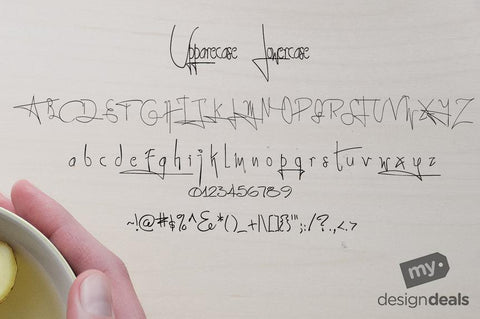 Upparecase Lowercase
ABCDEFGHIJKLMNOPQRSTUVWXYZ
abcdefghijklmnopqrstuvwxyz
0123456789
~!@#$%^&*()_+|\[]{}"';:/?.,<.>
my
designdeals